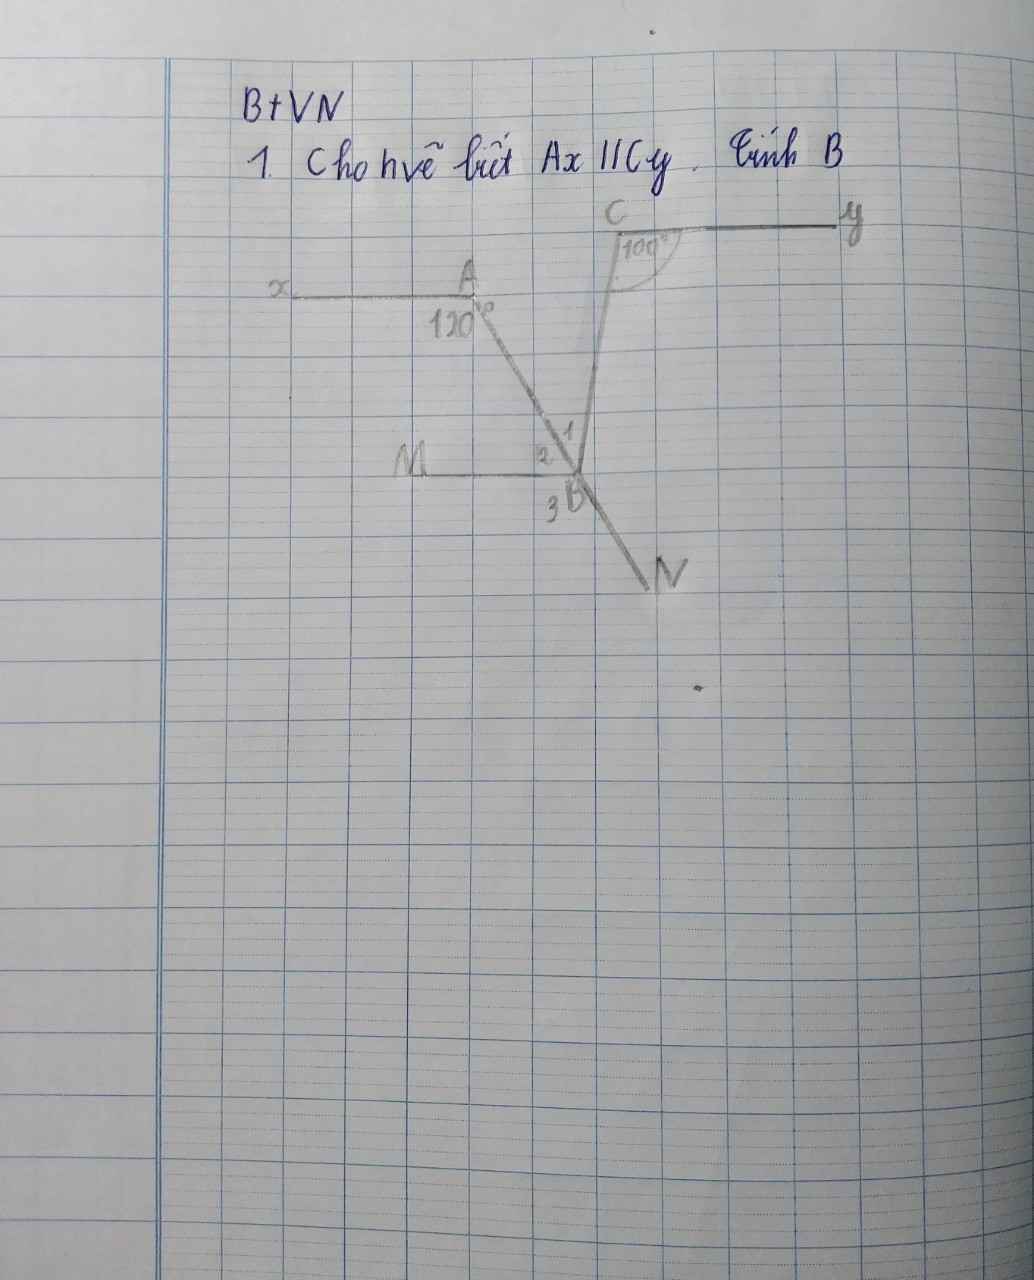 BtVN
1. Cho hvẽ biết Ax // Cy. Tính B
C y
100°
x A
120°
1
M 2
3 B
N